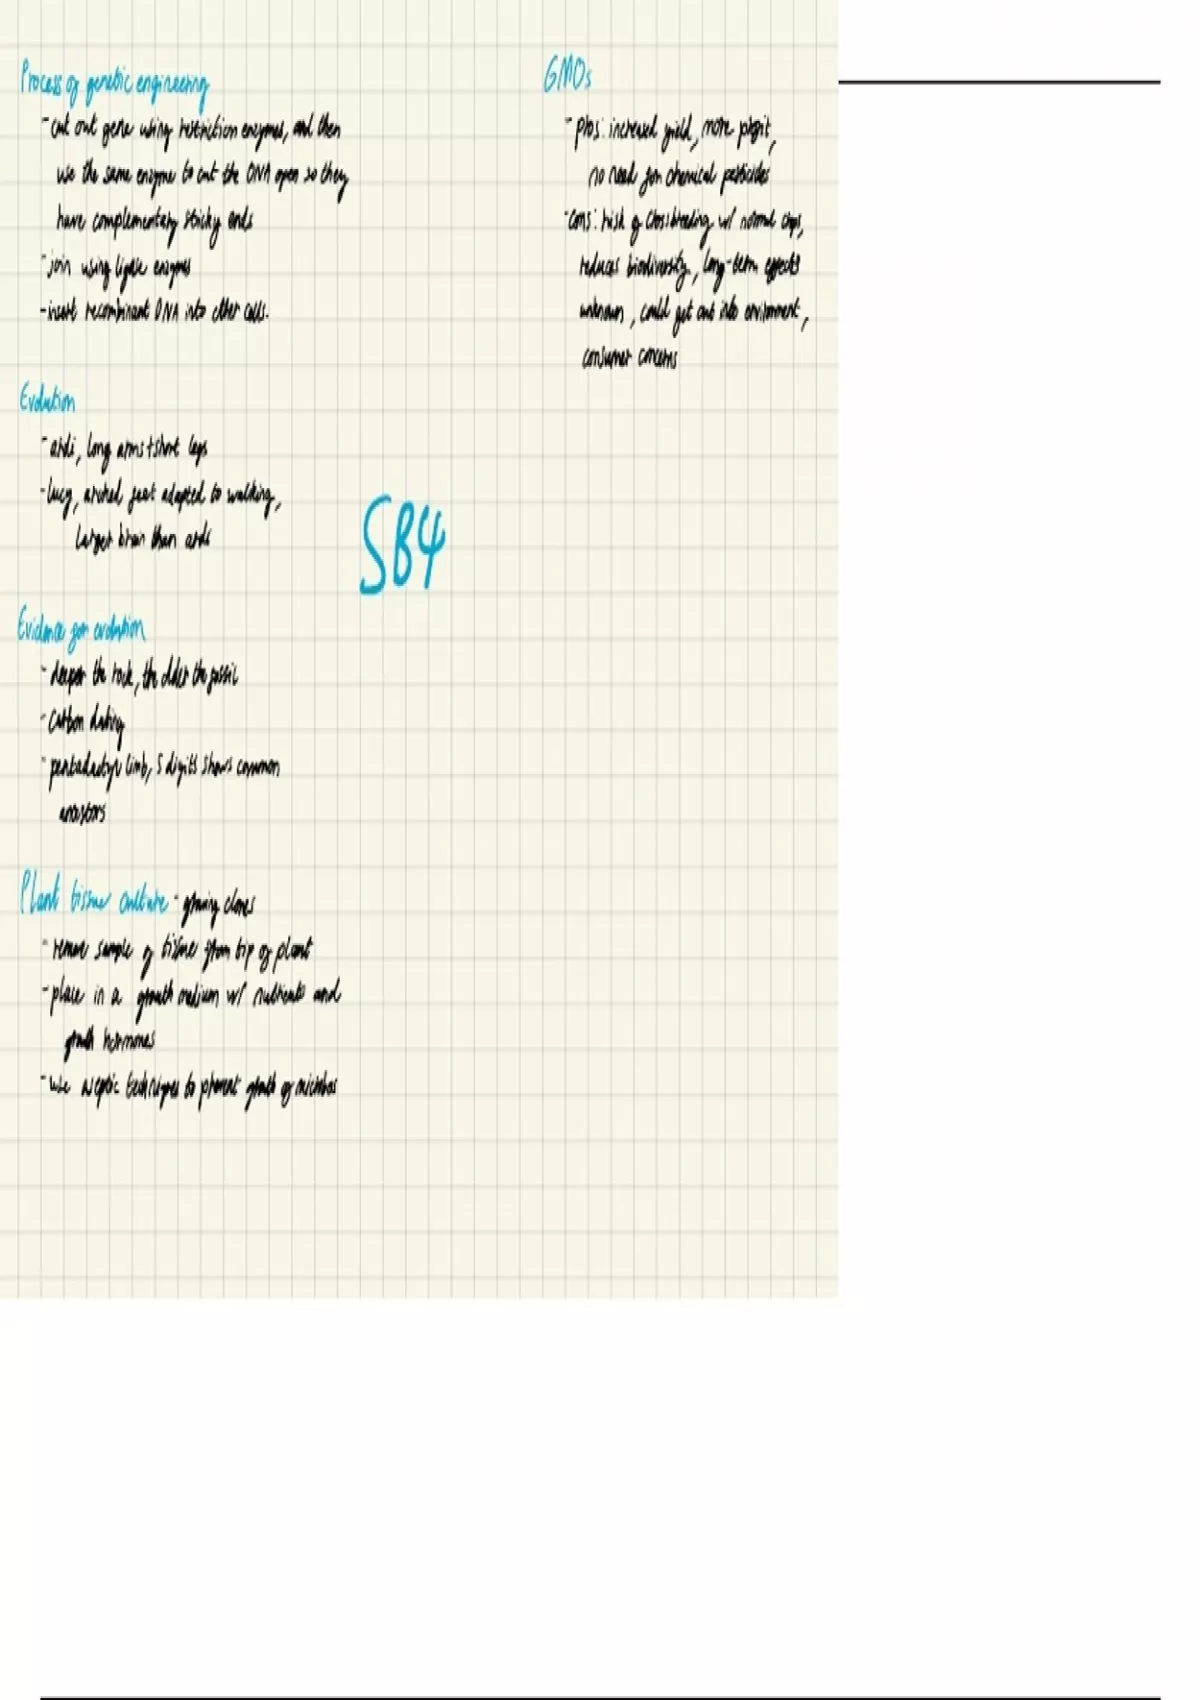 Process of genetic engineering
- cut out gene using restriction enzymes, and then
use the same enzyme to cut the DNA open so they
have complementary sticky ends
- join using ligase enzymes
- insert recombinant DNA into other cells.
Evolution
- ardi, long arms + short legs
- lucy, arched feet adapted to walking,
larger brain than ardi
Evidence for evolution
- deeper the rock, the older the fossil
- carbon dating
- pentadactyl limb, 5 digits shows common
ancestors
Plant tissue culture - growing clones
- remove sample of tissue from tip of plant
- place in a growth medium w/ nutrients and
growth hormones
- use aseptic techniques to prevent growth of microbes
SB4
GMOs
- pros: increased yield, more profit,
no need for chemical pesticides
- cons: risk of crossbreeding w/ normal crops,
reduces biodiversity, long-term effects
unknown, could get out into environment,
consumer concerns